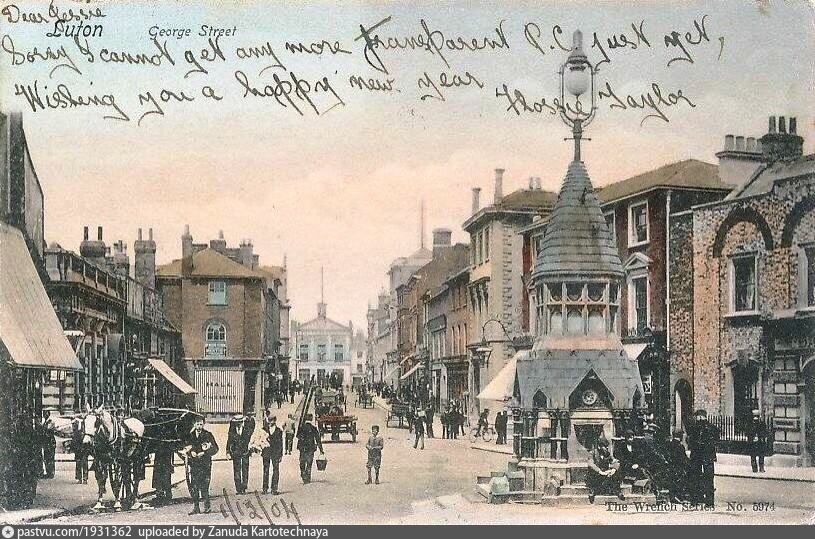 Dear Jessie
Luton George Street
Sorry I cannot get any more transparent P.C. just yet,
Wishing you a happy new year Flossie Taylor
1/12/04
The Wrench Series No. 5974
pastvu.com/1931362 uploaded by Zanuda Kartotechnaya